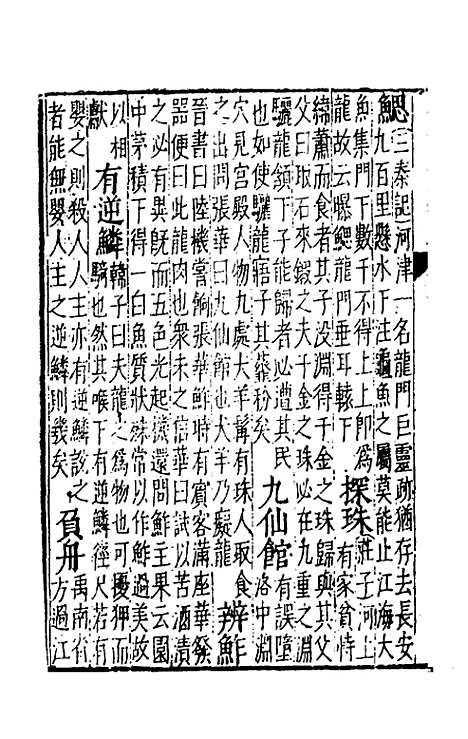 鰓三秦記河津一名龍門巨靈跡猶存去長安
九百里懸水下注龜魚之屬莫能止江海大
魚集門下數千不得上上即為
龍故云曝鰓龍門垂耳轅下
探珠莊子河上
有家貧恃
緯蕭而食者其子沒淵得千金之珠歸與其父
父曰取石來鍛之夫千金之珠必在九重之淵
驪龍頷下子能歸者必遭其民
也如使驪龍寤子其虀粉矣
九仙館洛中淵
有誤墮
穴見宮殿人物九處大羊髯有珠人取食
之出問張華曰九仙館也大羊乃癡龍
辨鮓
晉書曰陸機嘗餉張華鮓時有賓客滿座華發
器便曰此龍肉也眾未之信華曰試以苦酒漬
之必有異既而五色光起機還問鮓主果云園
中茅積下得一白魚質狀殊常以作鮓過美故
以相
獻
有逆鱗韓子曰夫龍之為物也可擾狎而
騎也然其喉下有逆鱗徑尺若有
嬰之則殺人人主亦有逆鱗說之
者能無嬰人主之逆鱗則幾矣
負舟禹南省
方過江